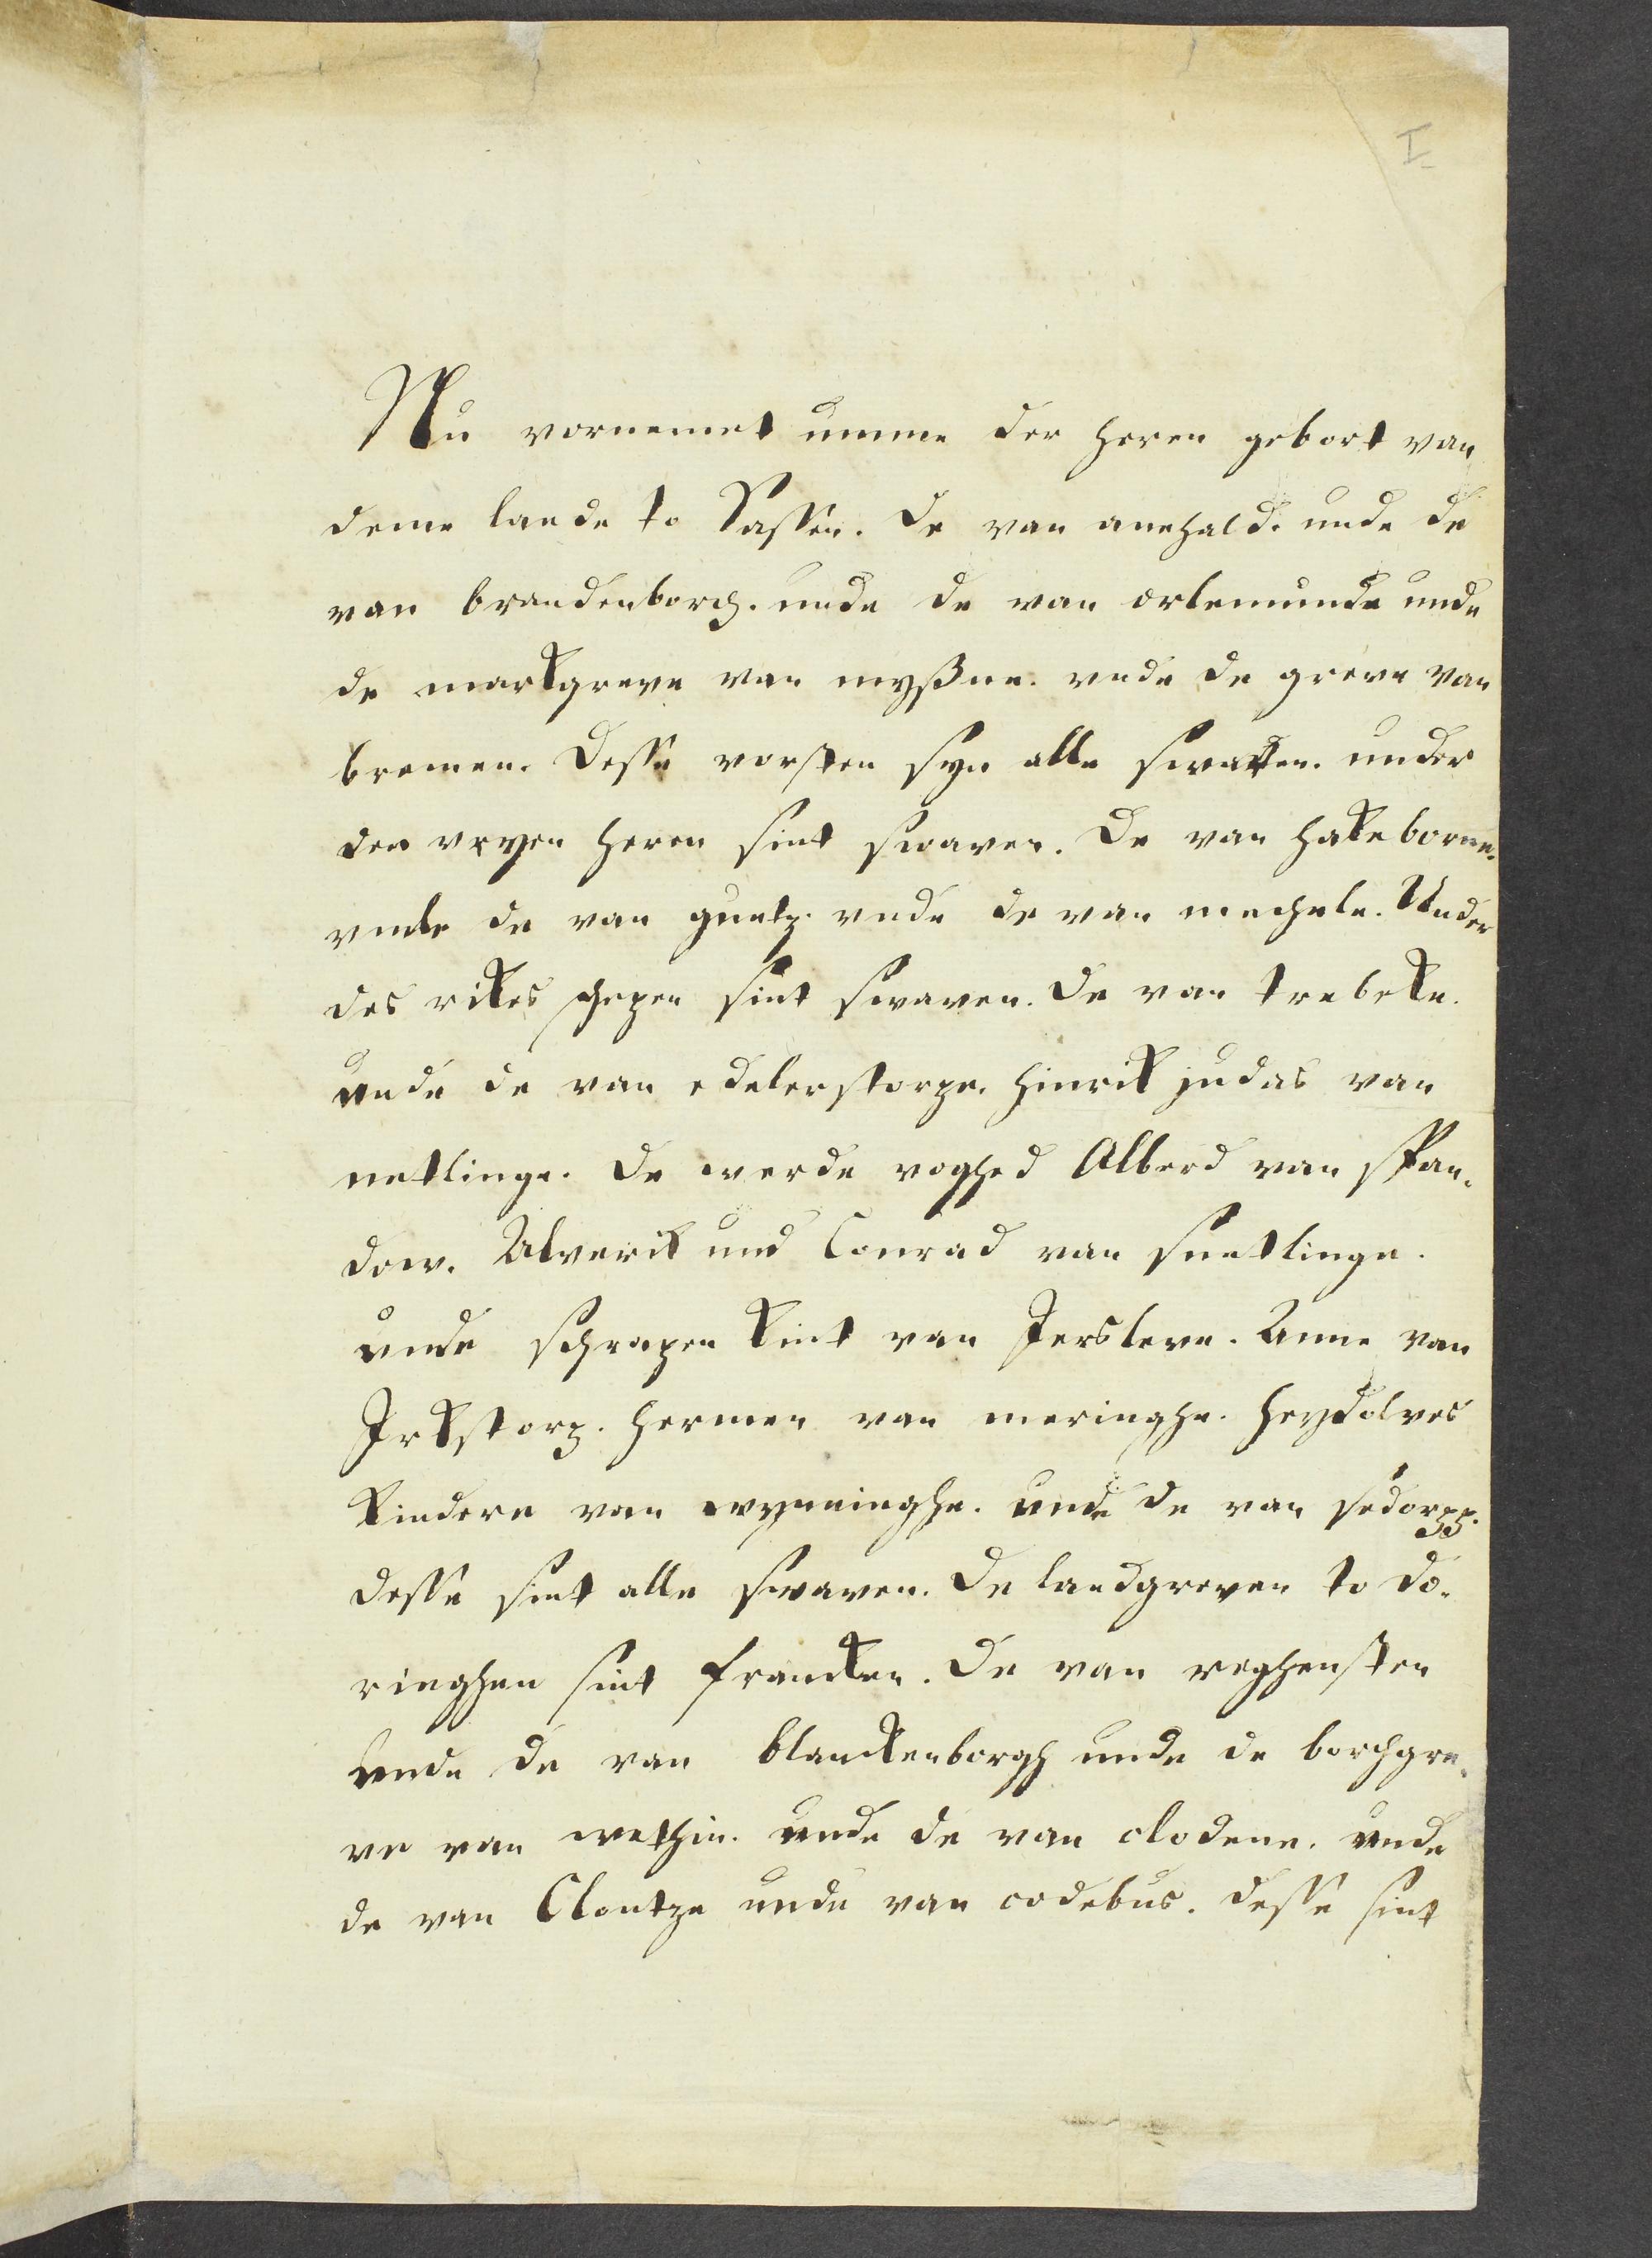 I
Nu vornemet umme der heren gebort van
deme lande to Sassen. De van anehald. unde de
van brandenborch. unde de van orlemunde unde
de markgreve van myßne. vnde de greve van
bremen. Desse vorsten syn alle swaven. under
den vryen heren sint swaven. De van hakeborne.
vnde de van gnetz. vnde de van mechele. Under
des rikes schepen sint swaven. De van trebeke.
unde de van edelerstorpe. hinrik judas van
netlinge. De werde voghed Alberd van span-
dow. Alverik und Conrad van snetlinge.
unde schrapen kint van Jersleve. Anne van
Jrkstorp. hermen van meringhe. heydolves
kindere van wynninghe. unde de van sedorpp.
desse sint alle swaven. De landgreven to do-
ringhen sint francken. De van reghensten
unde de van blanckenborgh unde de borchgre-
ve van wethin. unde de van clodene. unde
de van Clontze unde van codebus. desse sint